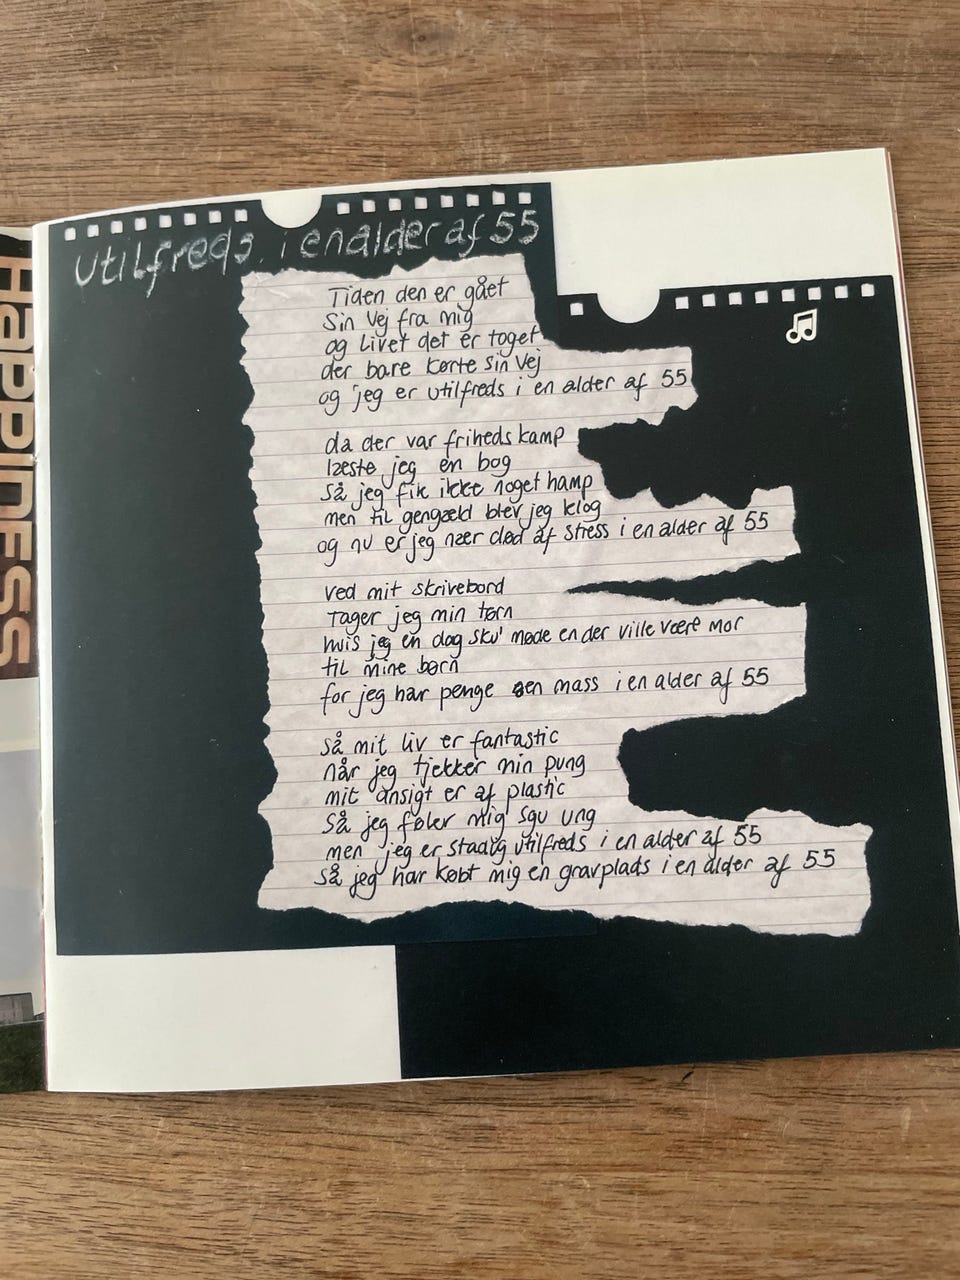 Happiness
utilfreds i en alder af 55
Tiden den er gået
Sin vej fra mig
og Livet det er toget
der bare kørte sin vej
og jeg er utilfreds i en alder af 55
da der var friheds kamp
læste jeg en bog
Så jeg fik ikke noget hamp
men til gengæld blev jeg klog
og nu er jeg nær død af stress i en alder af 55
ved mit skrivebord
Tager jeg min tørn
hvis jeg en dag sku' møde en der ville være mor
til mine børn
for jeg har penge en mass i en alder af 55
Så mit liv er fantastic
når jeg tjekker min pung
mit ansigt er af plastic
Så jeg føler mig sgu ung
men jeg er stadig utilfreds i en alder af 55
Så jeg har købt mig en gravplads i en alder af 55